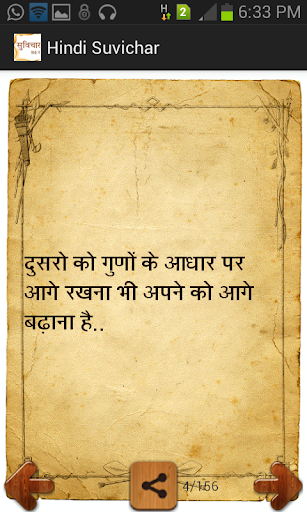 H 2 6:33 PM
सुविचार Hindi Suvichar
दुसरो को गुणों के आधार पर
आगे रखना भी अपने को आगे
बढ़ाना है..
4/156